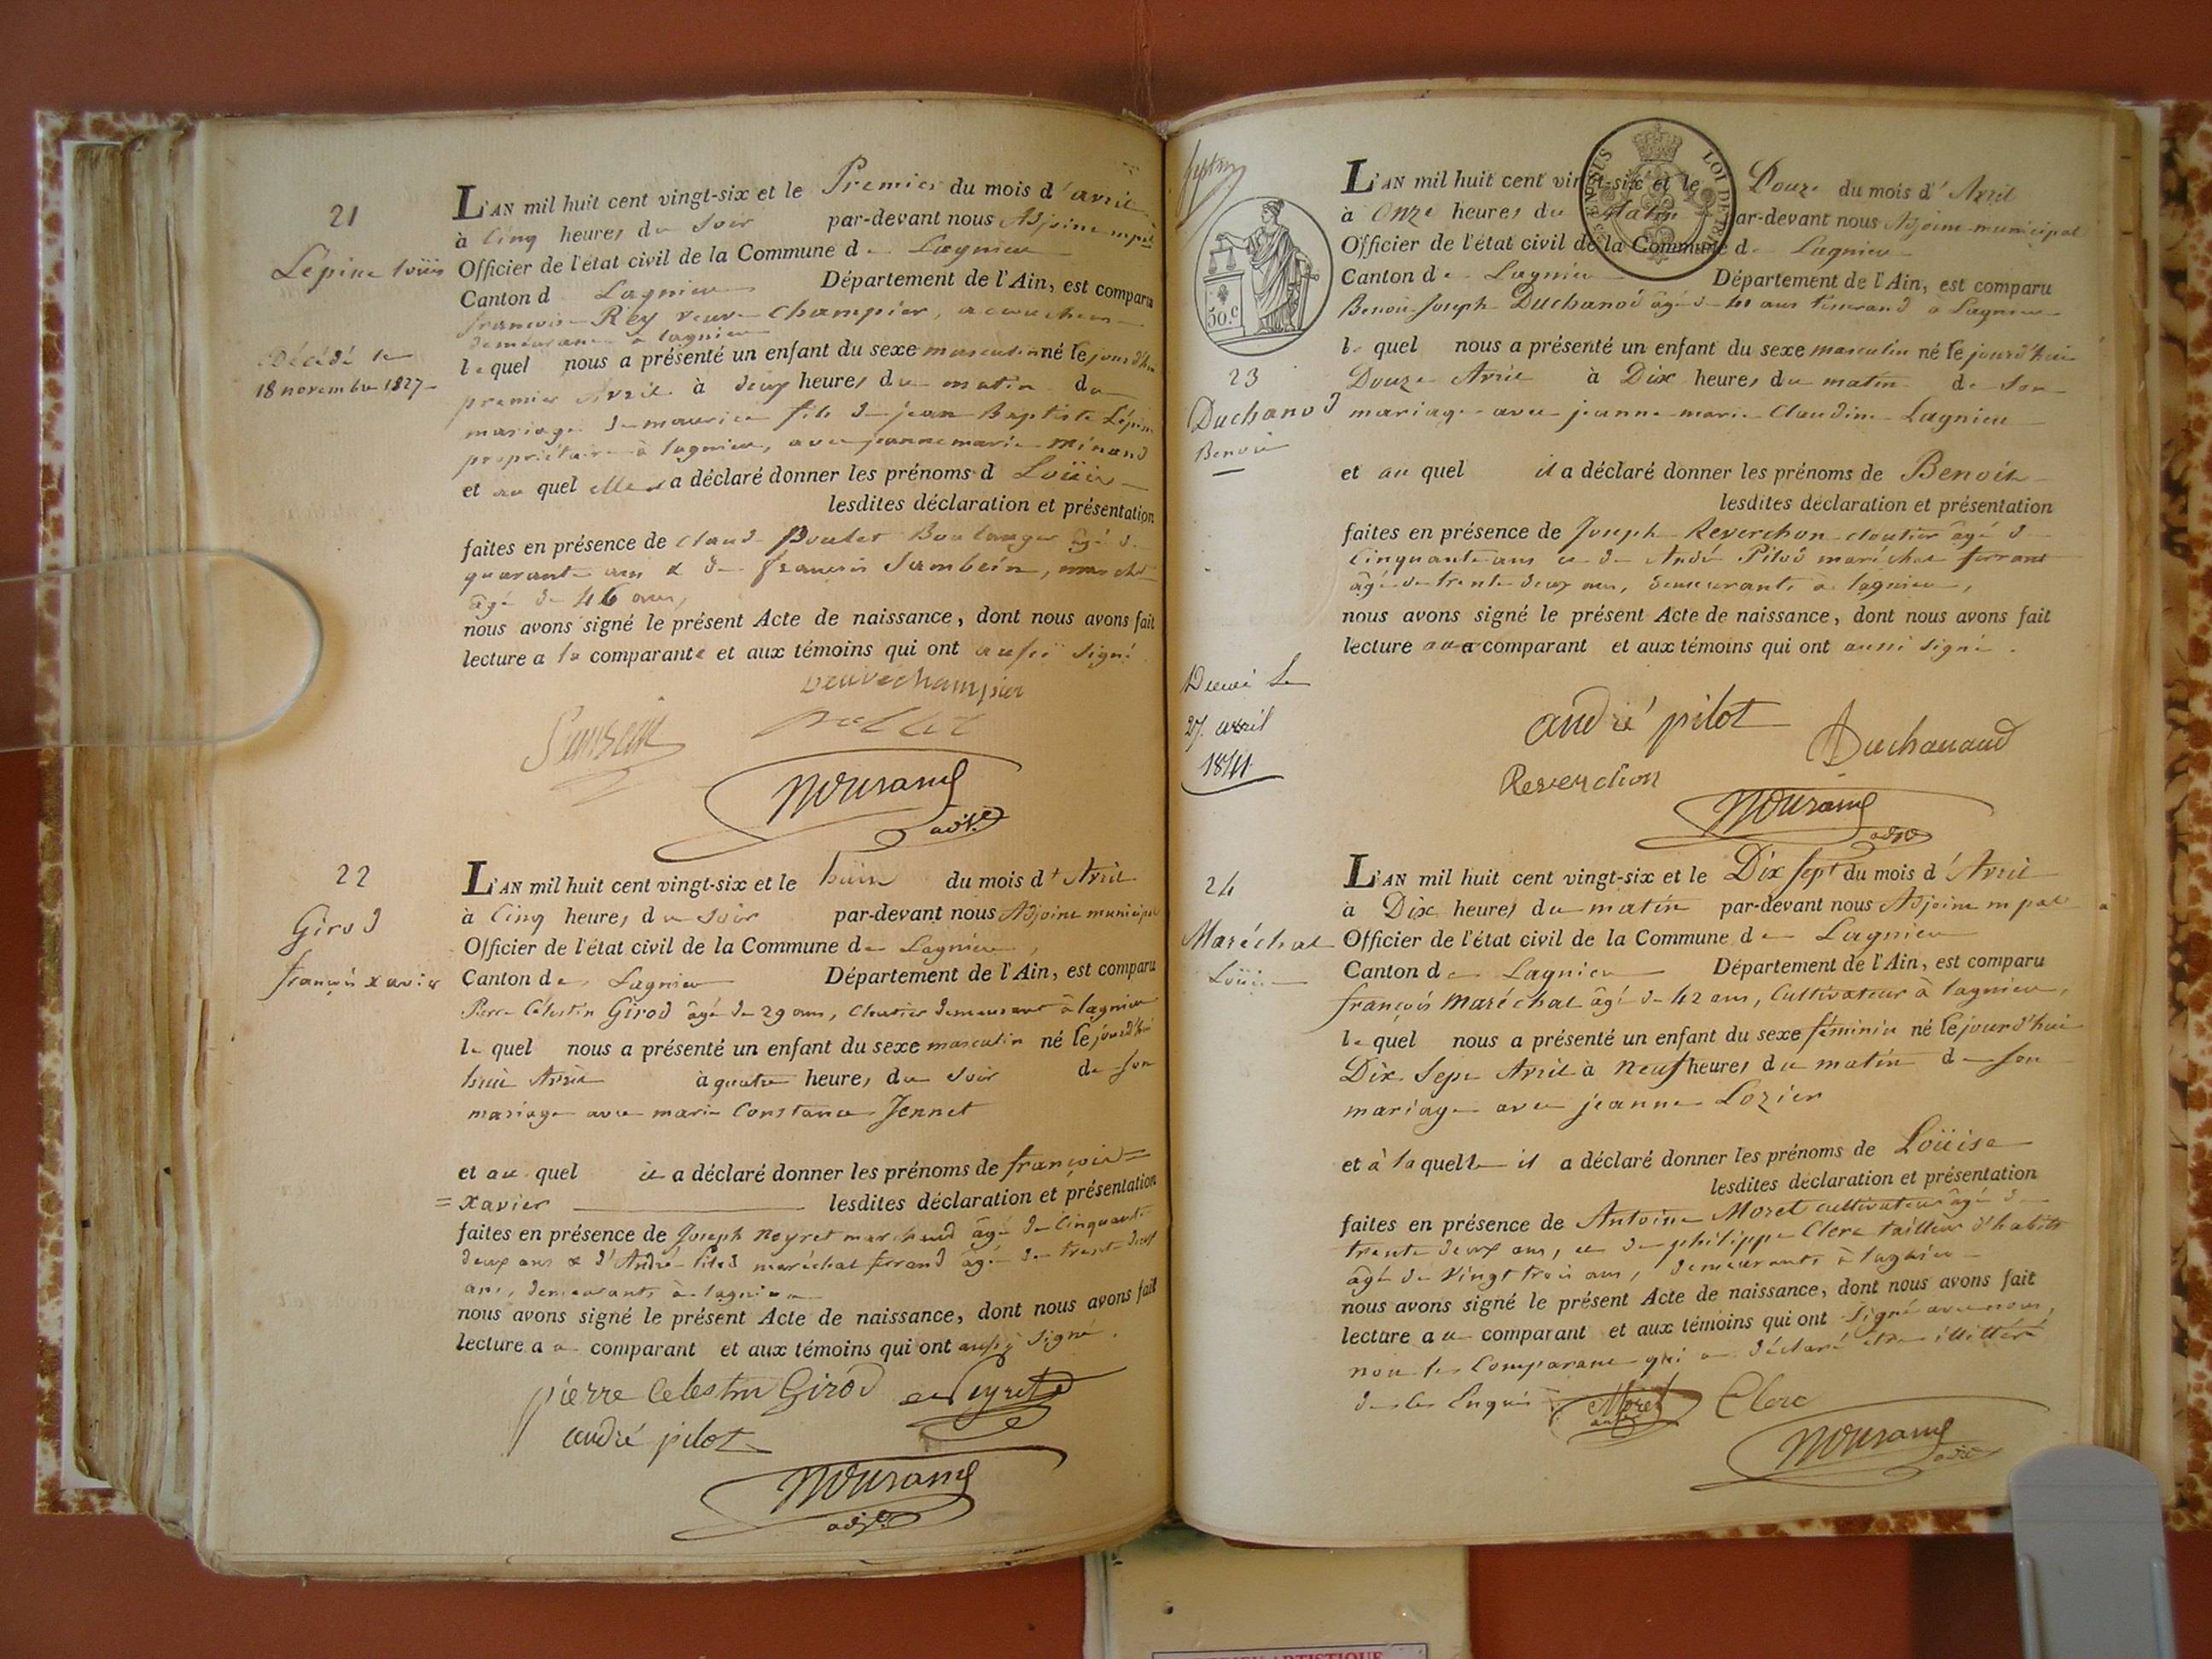 21
Lépine Loüis
Décédé le
18 novembre 1827
L'AN mil huit cent vingt-six et le Premier du mois d'avril
à Cinq heures du Soir par-devant nous Adjoint mpal
Officier de l'état civil de la Commune de Lagnieu
Canton d Lagnieu Département de l'Ain, est comparu
françoise Rey veuve Champier, accoucheuse
demeurant à lagnieu
lequel nous a présenté un enfant du sexe masculin né le jourd'hui
premier Avril à deux heures du matin du
mariage de maurice fils de jean Baptiste Lépine
propriétaire à lagnieu, avec jeanne marie Minand
et au quel elle a déclaré donner les prénoms d Loüis
lesdites déclaration et présentation
faites en présence de Claude Poulet Boulanger âgé de
quarante ans & de françois Sambein, march
âgé de 46 ans,
nous avons signé le présent Acte de naissance, dont nous avons fait
lecture a la comparante et aux témoins qui ont aussi signé
veuve champier
Mourand
adjt
22
Girod
françois xavier
L'AN mil huit cent vingt-six et le huit du mois d'Avril
à Cinq heures du Soir par-devant nous Adjoint municipal
Officier de l'état civil de la Commune de Lagnieu,
Canton de Lagnieu Département de l'Ain, est comparu
Pierre Célestin Girod âgé de 29 ans, Cloutier demeurant à lagnieu
lequel nous a présenté un enfant du sexe masculin né le jourd'hui
huit Avril à quatre heures du Soir de son
mariage avec marie Constance Jennet
et au quel il a déclaré donner les prénoms de françois=
=xavier lesdites déclaration et présentation
faites en présence de Joseph Neyret marchand âgé de Cinquante
deux ans & d'André Pilod maréchal ferrand âgé de trente deux
ans, demeurants à lagnieu
nous avons signé le présent Acte de naissance, dont nous avons fait
lecture a u comparant et aux témoins qui ont aussi signé.
pierre Celestin Girod Neyret
andré pilot
Mourand
adjt
50.c
LOI DE
23
Duchanod
Benoit
Décédé le
27 avril
1841
L'AN mil huit cent vingt-six et le Douze du mois d'Avril
à Onze heures du Matin par-devant nous Adjoint municipal
Officier de l'état civil de la Commune de Lagnieu
Canton de Lagnieu Département de l'Ain, est comparu
Benoit Joseph Duchanod âgé de ans tisserand à Lagnieu
lequel nous a présenté un enfant du sexe masculin né le jourd'hui
Douze Avril à Dix heures du matin de Son
mariage avec jeanne marie Claudine Lagnieu
et au quel il a déclaré donner les prénoms de Benoit
lesdites déclaration et présentation
faites en présence de Joseph Reverchon cloutier âgé de
Cinquante ans et de André Pilod maréchal ferrant
âgé de trente deux ans, demeurants à lagnieu,
nous avons signé le présent Acte de naissance, dont nous avons fait
lecture au comparant et aux témoins qui ont aussi signé.
andré pilot Duchanaud
Reverchon
Mourand
adjt
24
Maréchal
Loüise
L'AN mil huit cent vingt-six et le Dix Sept du mois d'Avril
à Dix heures du matin par-devant nous Adjoint mpal
Officier de l'état civil de la Commune de Lagnieu
Canton de Lagnieu Département de l'Ain, est comparu
françois Maréchal âgé de 42 ans, Cultivateur à lagnieu,
lequel nous a présenté un enfant du sexe féminin né le jourd'hui
Dix Sept Avril à Neuf heures du matin de son
mariage avec jeanne Lozier
et à laquelle il a déclaré donner les prénoms de Loüise
lesdites déclaration et présentation
faites en présence de Antoine Moret cultivateur âgé de
trente deux ans, et de philippe Clerc tailleur d'habits
âgé de Vingt trois ans, demeurants à lagnieu
nous avons signé le présent Acte de naissance, dont nous avons fait
lecture a u comparant et aux témoins qui ont signé avec nous,
non le Comparant qui a déclaré être illitéré
de ce Enquis Moret Clerc
Mourand
adjt